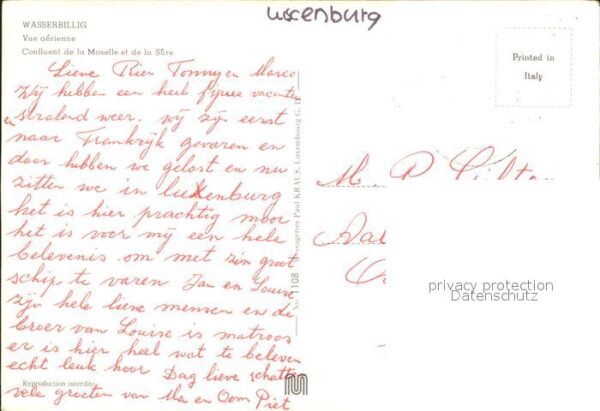 luxenburg
WASSERBILLIG
Vue aérienne
Confluent de la Moselle et de la Sûre
Lieve Rien Tonny en Marco
Wij hebben een heel fijne vacantie
en stralend weer. wij zijn eerst
naar Frankrijk gevaren en
daar hebben we gelost en nu
zitten we in luxenburg
het is hier prachtig moor
het is voor mij een hele
belevenis om met zón groot
schip te varen Jan en Louise
zijn hele lieve mensen en de
broer van Louise is matroos
er is hier heel wat te beleven
echt leuk hoor Dag lieve schatten
vele groeten van Ma en Oom Piet
Reproduction interdite
No. 1108
Messageries Paul KRAUS, Luxembourg G. D.
M
Printed in
Italy
privacy protection
Datenschutz